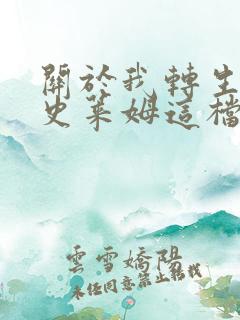 關於我轉生
史萊姆這檔
雲雪嬌陽
未經同意禁止轉載